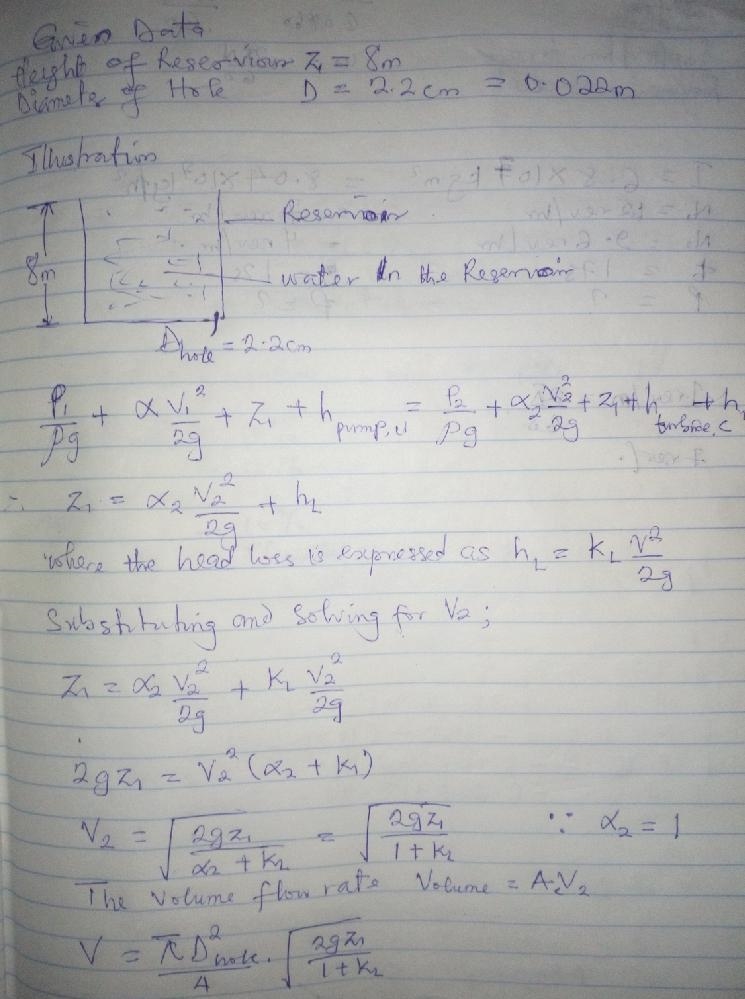 Given Data
Height of Reservior Z₁ = 8m
Diameter of Hole D = 2.2cm = 0.022m
Illustration
Reservoir
8m
water In the Reservoir
D_hole = 2.2cm
P₁/ρg + α V₁²/2g + Z₁ + h_pump,u = P₂/ρg + α₂ V₂²/2g + Z₁ + h_turbine,c + h
∴ Z₁ = α₂ V₂²/2g + h_L
where the head loss is expressed as h_L = K_L V²/2g
Substituting and Solving for V₂;
Z₁ = α₂ V₂²/2g + K_L V₂²/2g
2gZ₁ = V₂² (α₂ + K_L)
V₂ = √(2gZ₁/(α₂ + K_L)) = √(2gZ₁/(1 + K_L)) ∵ α₂ = 1
The Volume flow rate Volume = A·V₂
V = πD²_hole/4 · √(2gZ₁/(1 + K_L))